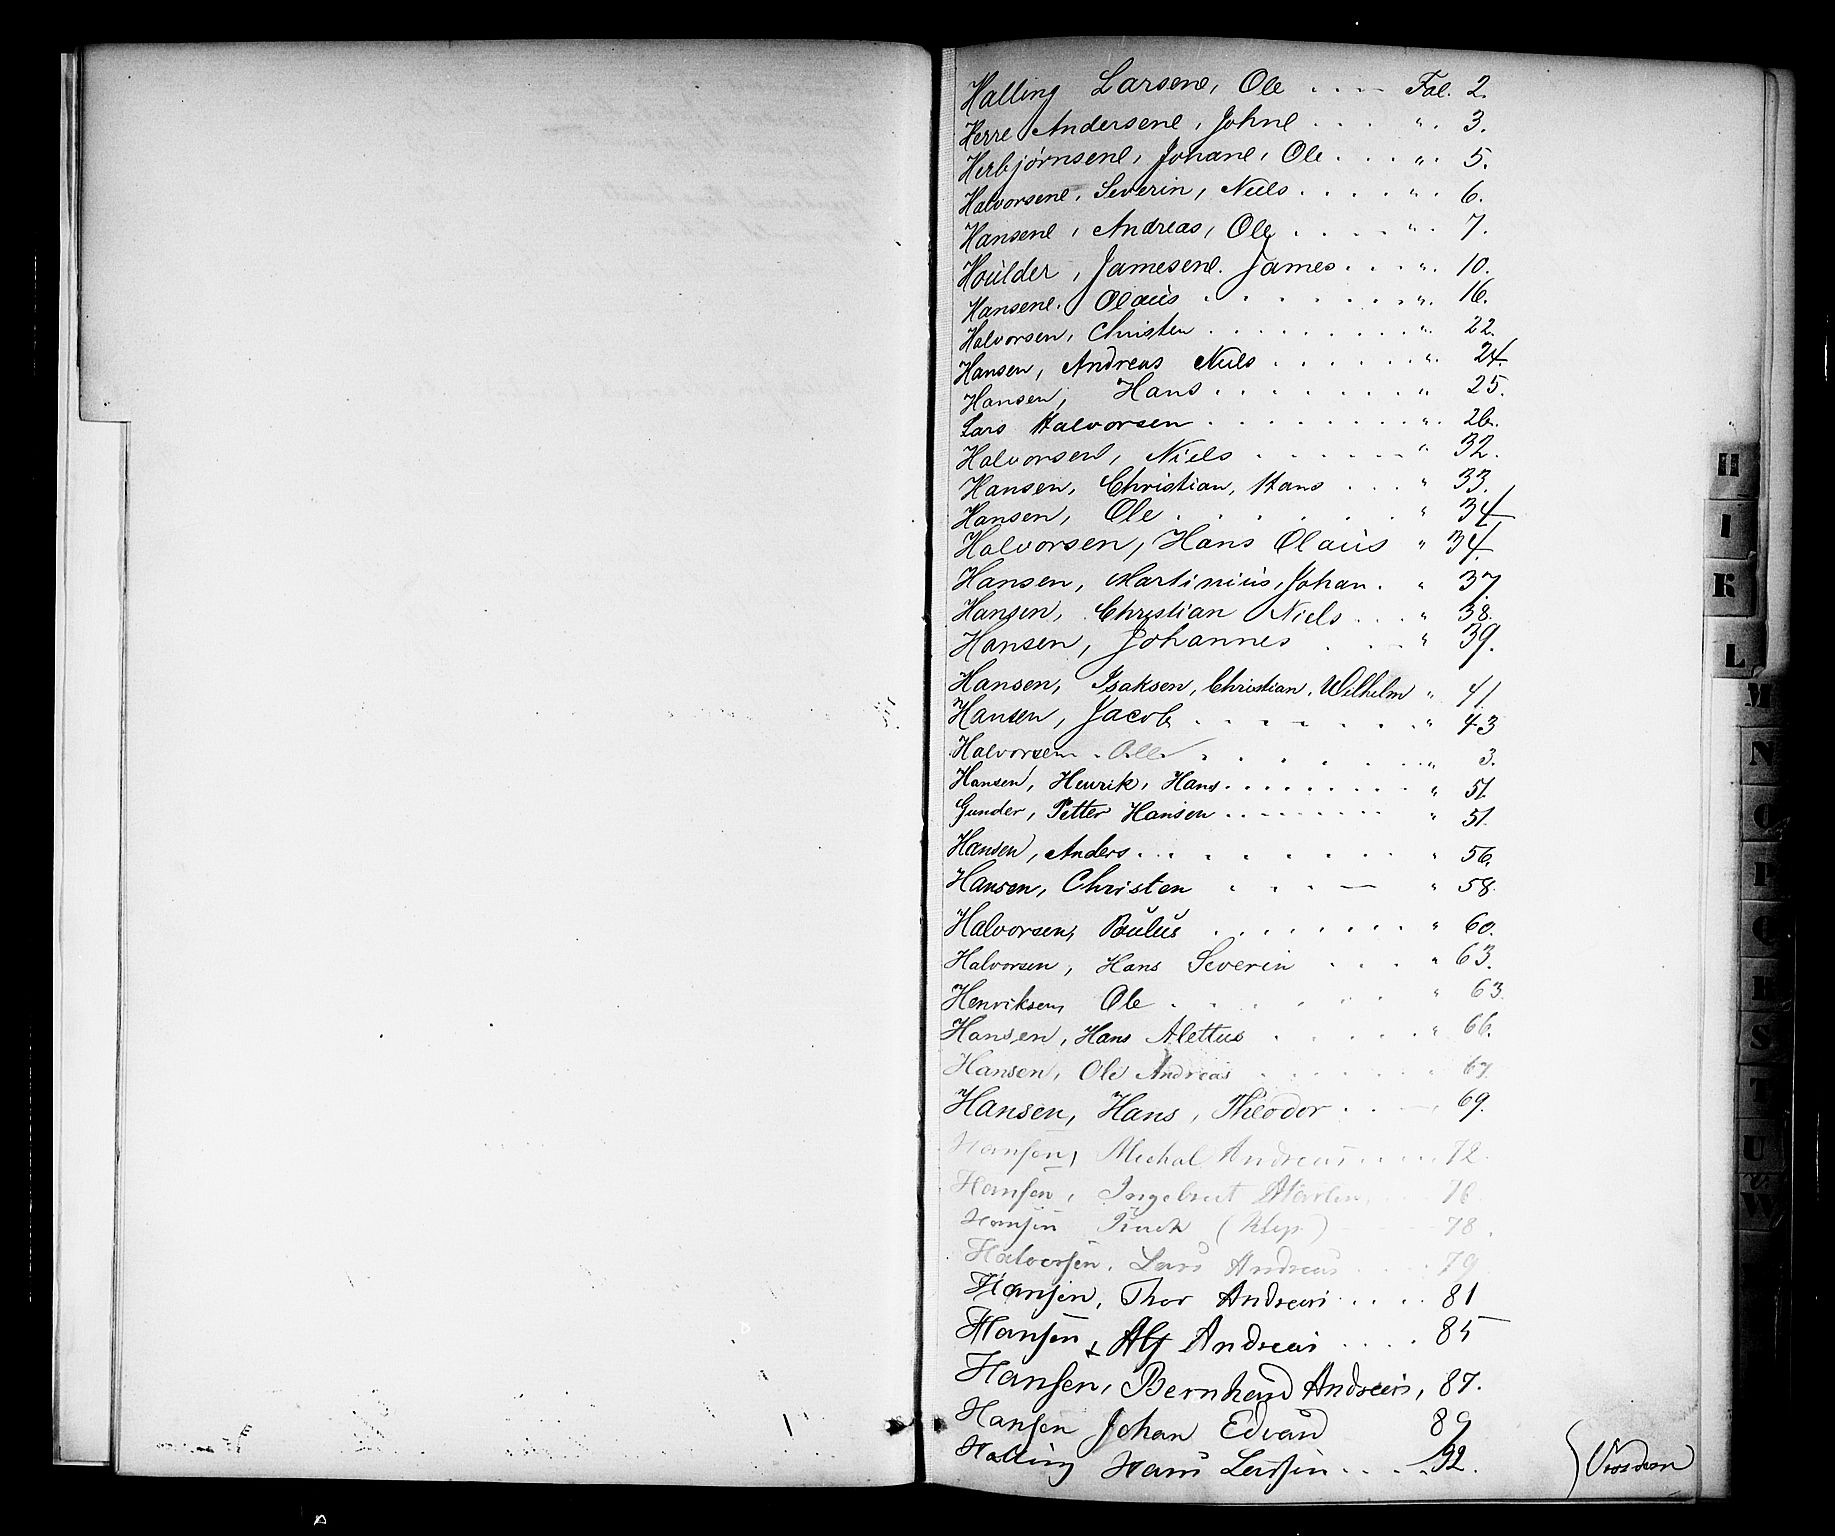 Halling Larsene, Ole . . . Fol. 2.
Herre Andersene, Johne . . . ". 3.
Herbjørnsene, Johane, Ole . . . ". 5.
Halvorsene, Severin, Niels . . . . ". 6.
Hansene, Andreas, Ole . . . . ". 7.
Houlder, Jamesene. James . . . ". 10.
Hansene. Olaus . . . . . . . ". 16.
Halvorsen, Christen . . . . . . . . ". 22.
Hansen, Andreas Niels . . . . . . ". 24.
Hansen, Hans . . . . . . . " 25.
Lars Halvorsen . . . . . . . . ". 26.
Halvorsen, Niels . . . . . . " 32.
Hansen, Christian, Hans . . . " 33.
Hansen, Ole . . . . . . " 34
Halvorsen, Hans Olaus " 34.
Hansen, Martinius, Johan . " 37
Hansen, Christian Niels . . . " 38.
Hansen, Johannes . . . " 39.
Hansen, Isaksen, Christian, Wilhelm " 41
Hansen, Jacob . . . . . . . " 43
Halvorsen . Ole . . . . . . " 3.
Hansen, Henrik, Hans . . . . . . . . . " 51
Gunder, Petter Hansen . . . . . . . . " 51.
Hansen, Anders . . . . . . . . " 56.
Hansen, Christen . . . . — " 58.
Halvorsen, Paulus . . . . . . . . " 60.
Halvorsen, Hans Severin . . . " 63.
Henriksen, Ole . . . . . . . " 63.
Hansen, Hans Alettus . . . . . " 66.
Hansen, Ole Andreas . . . . . " 67
Hansen, Hans, Theodor . . . 69.
Hansen, Michal Andreas . . . . . 72.
Hansen, Ingebret Martin . . . 76
Hansen (Klep) 78.
Halvorsen, Lars Andreas . . . . 79
Hansen, Thor Andreas . . . . 81
Hansen, Alf Andreas . . . . 85
Hansen, Bernhard Andreas, 87.
Hansen Johan Edvard 89
Halling Hans Larsen . . . . . 92.
H
I
K
L
M
N
O
P
Q
R
S
T
U
W